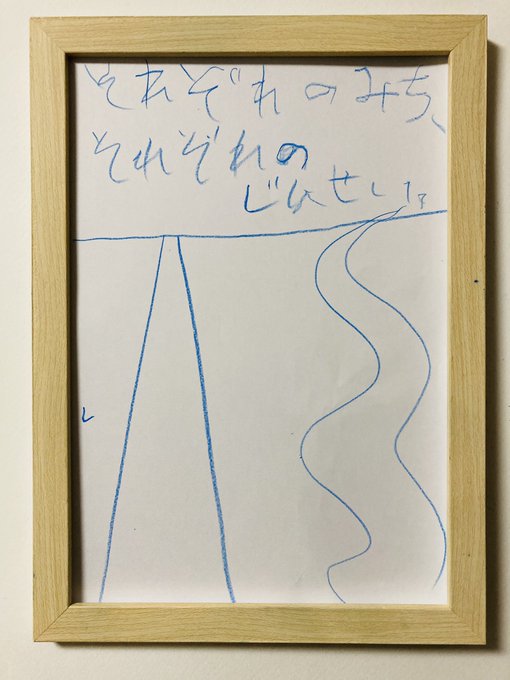 それぞれのみち、
それぞれの
じんせい